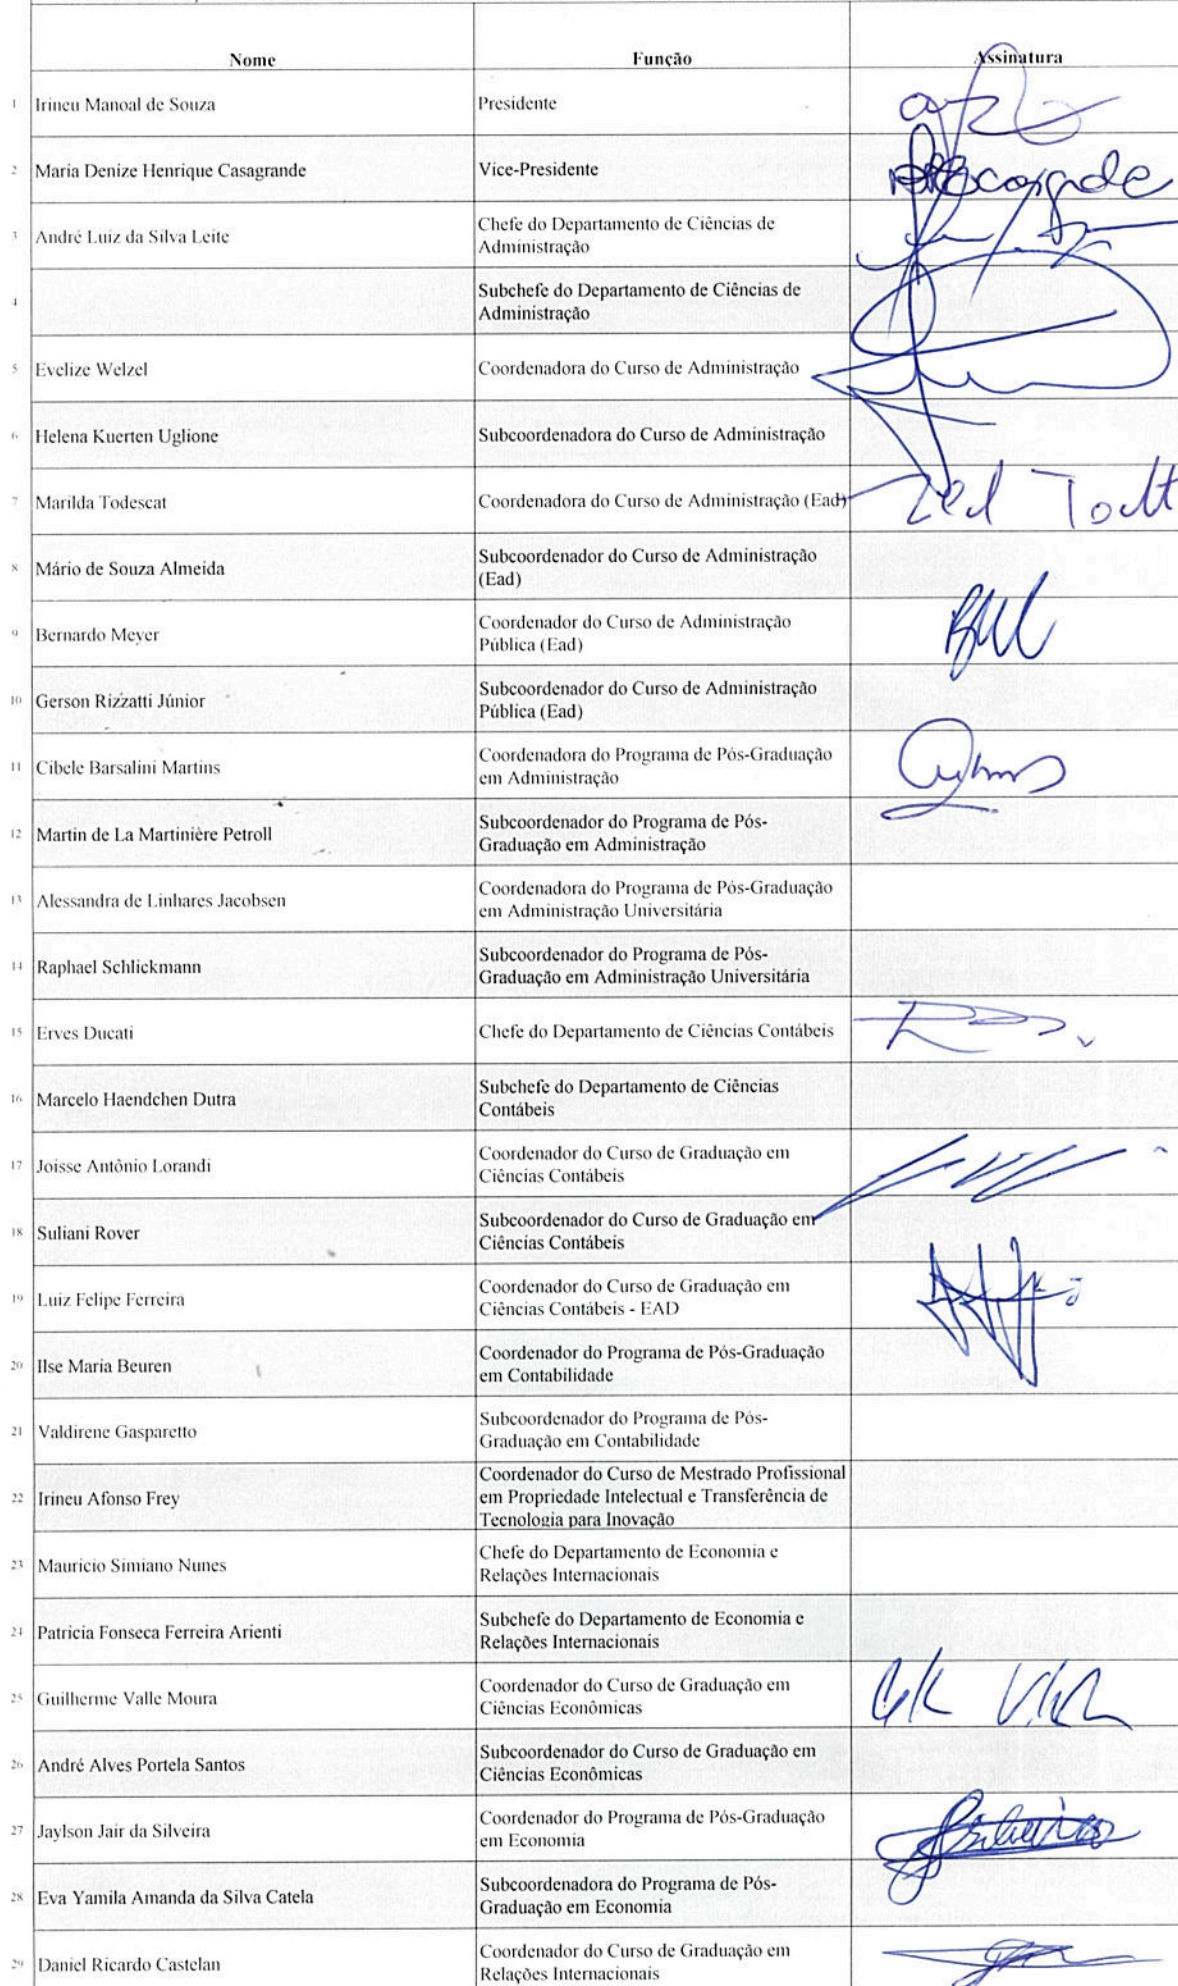 Nome Função Assinatura
1 Irineu Manoal de Souza Presidente
2 Maria Denize Henrique Casagrande Vice-Presidente
3 André Luiz da Silva Leite Chefe do Departamento de Ciências de
Administração
4 Subchefe do Departamento de Ciências de
Administração
5 Evelize Welzel Coordenadora do Curso de Administração
6 Helena Kuerten Uglione Subcoordenadora do Curso de Administração
7 Marilda Todescat Coordenadora do Curso de Administração (Ead)
8 Mário de Souza Almeida Subcoordenador do Curso de Administração
(Ead)
9 Bernardo Meyer Coordenador do Curso de Administração
Pública (Ead)
10 Gerson Rizzatti Júnior Subcoordenador do Curso de Administração
Pública (Ead)
11 Cibele Barsalini Martins Coordenadora do Programa de Pós-Graduação
em Administração
12 Martin de La Martinière Petroll Subcoordenador do Programa de Pós-
Graduação em Administração
13 Alessandra de Linhares Jacobsen Coordenadora do Programa de Pós-Graduação
em Administração Universitária
14 Raphael Schlickmann Subcoordenador do Programa de Pós-
Graduação em Administração Universitária
15 Erves Ducati Chefe do Departamento de Ciências Contábeis
16 Marcelo Haendchen Dutra Subchefe do Departamento de Ciências
Contábeis
17 Joisse Antônio Lorandi Coordenador do Curso de Graduação em
Ciências Contábeis
18 Suliani Rover Subcoordenador do Curso de Graduação em
Ciências Contábeis
19 Luiz Felipe Ferreira Coordenador do Curso de Graduação em
Ciências Contábeis - EAD
20 Ilse Maria Beuren Coordenador do Programa de Pós-Graduação
em Contabilidade
21 Valdirene Gasparetto Subcoordenador do Programa de Pós-
Graduação em Contabilidade
22 Irineu Afonso Frey Coordenador do Curso de Mestrado Profissional
em Propriedade Intelectual e Transferência de
Tecnologia para Inovação
23 Mauricio Simiano Nunes Chefe do Departamento de Economia e
Relações Internacionais
24 Patricia Fonseca Ferreira Arienti Subchefe do Departamento de Economia e
Relações Internacionais
25 Guilherme Valle Moura Coordenador do Curso de Graduação em
Ciências Econômicas
26 André Alves Portela Santos Subcoordenador do Curso de Graduação em
Ciências Econômicas
27 Jaylson Jair da Silveira Coordenador do Programa de Pós-Graduação
em Economia
28 Eva Yamila Amanda da Silva Catela Subcoordenadora do Programa de Pós-
Graduação em Economia
29 Daniel Ricardo Castelan Coordenador do Curso de Graduação em
Relações Internacionais